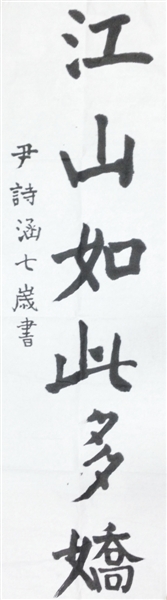 江山如此多嬌
尹詩涵七歲書